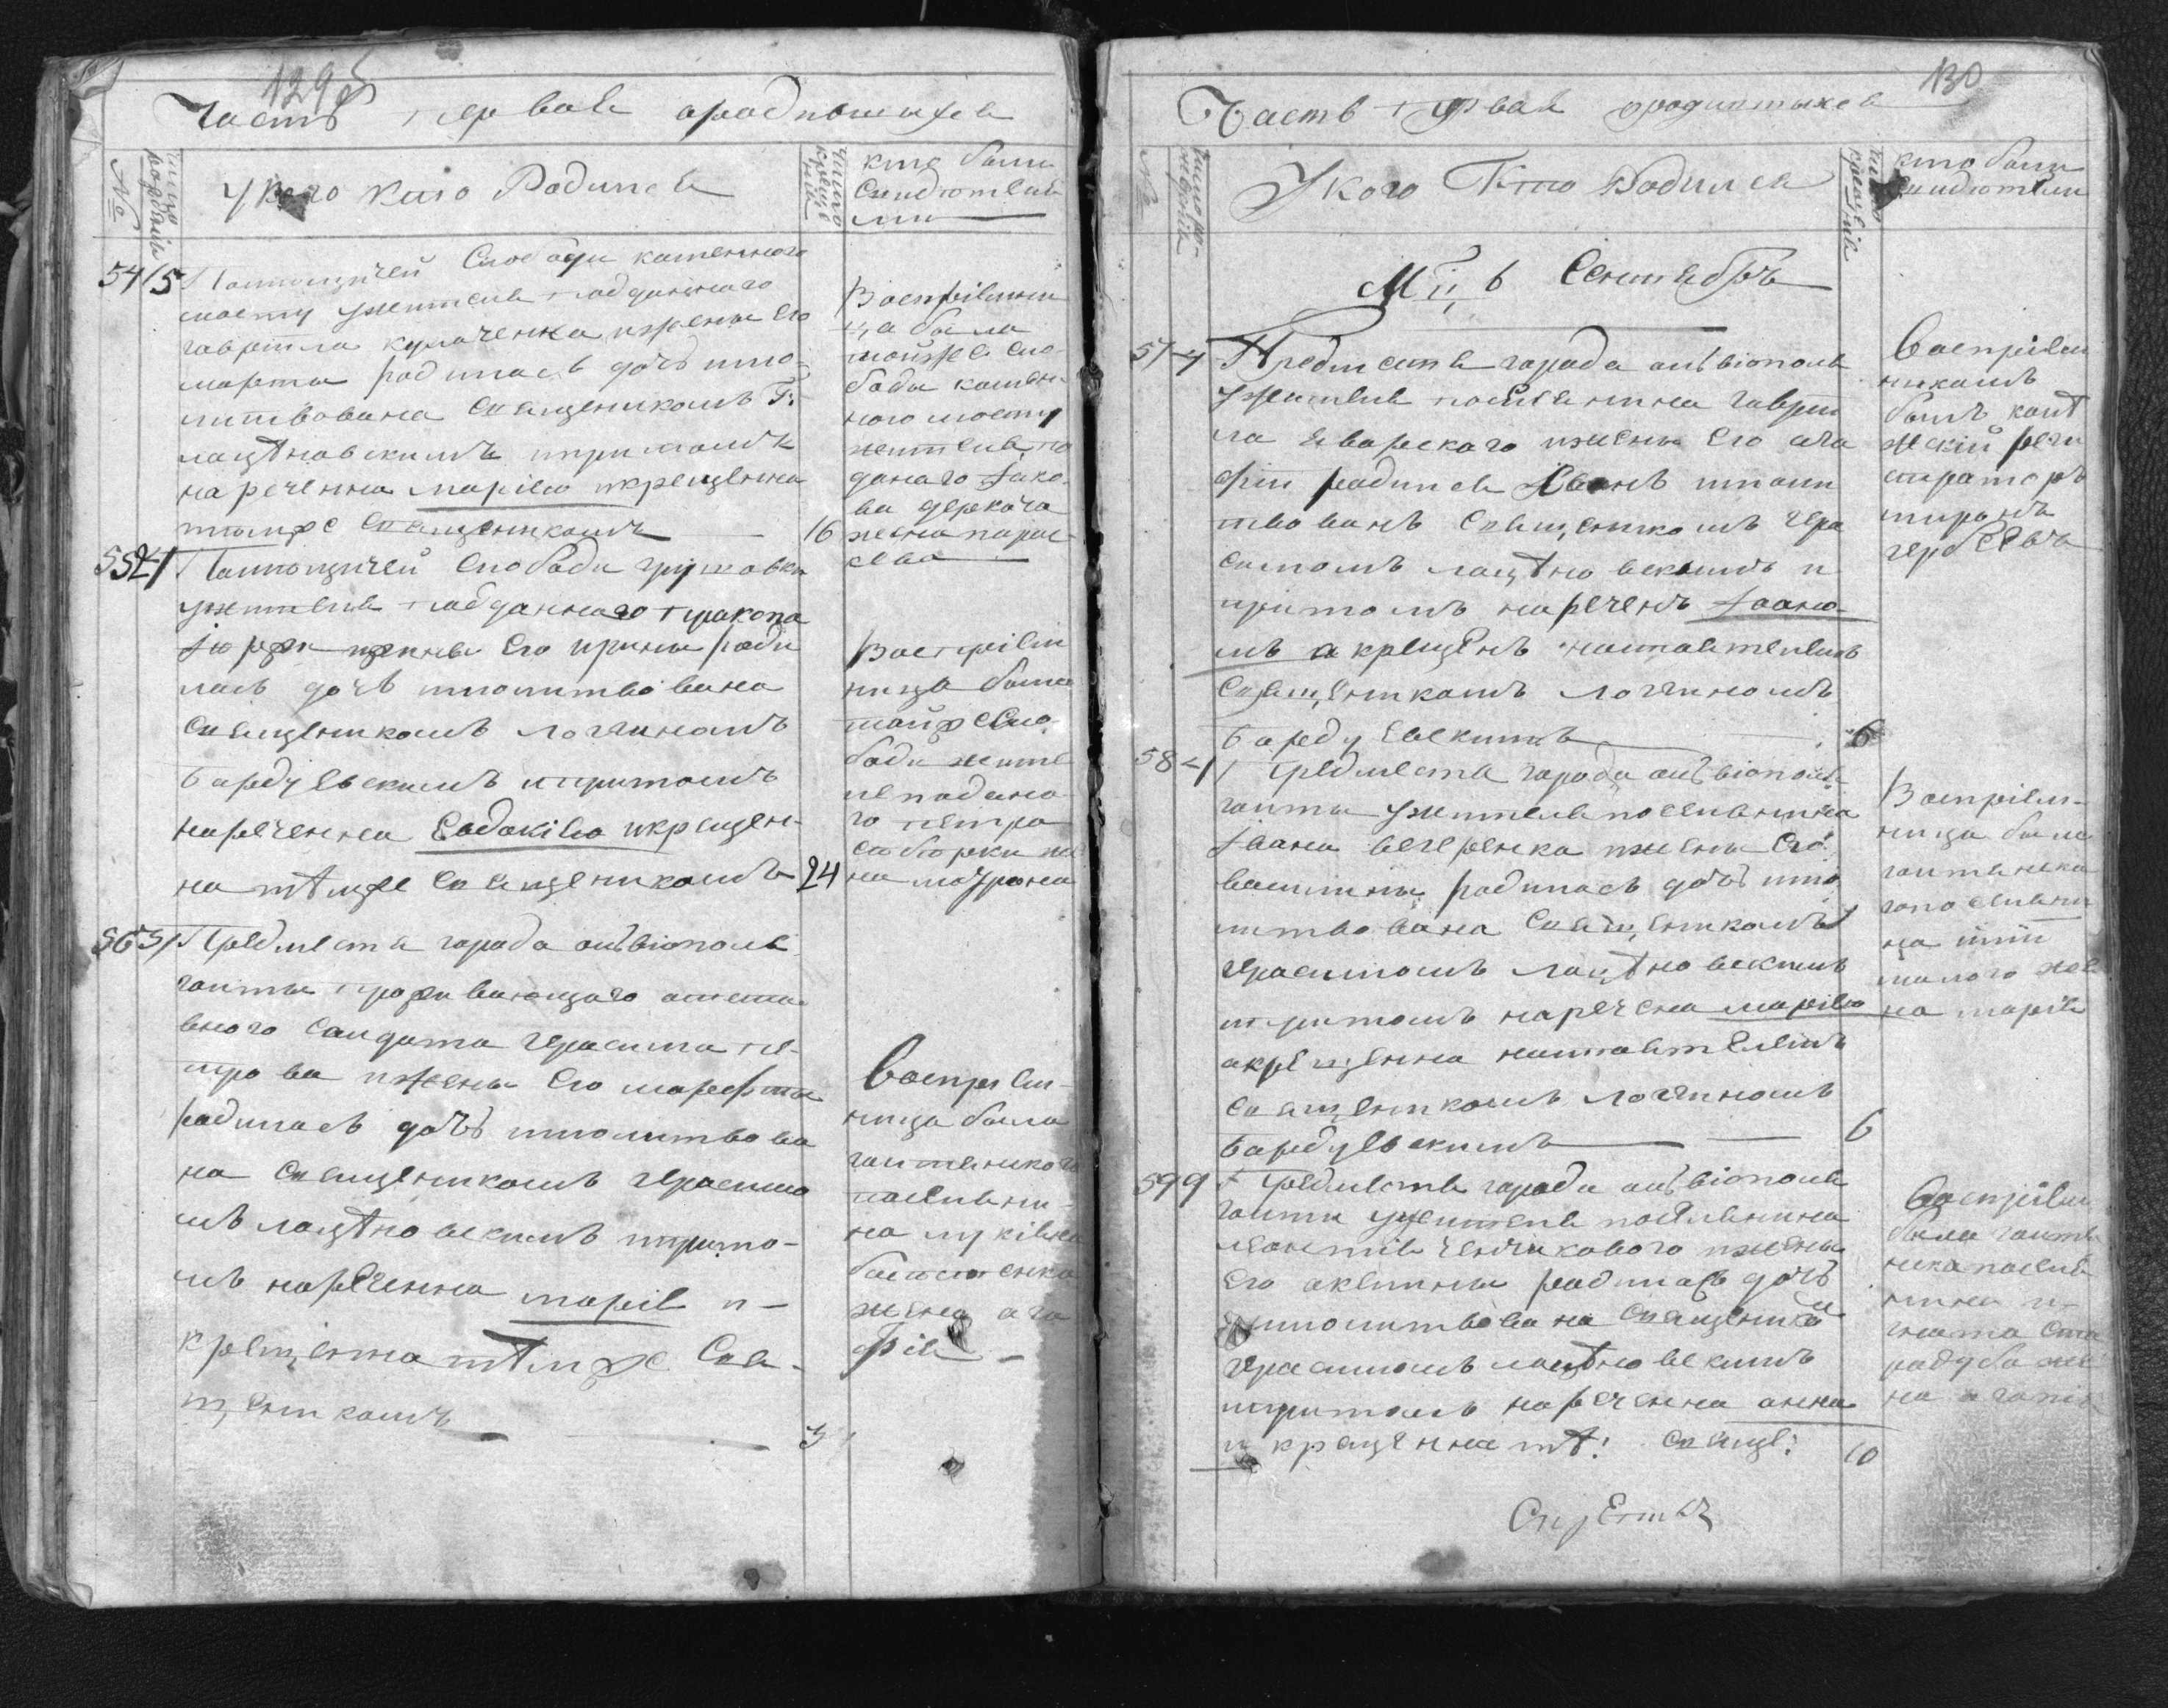 129
Часть первая ородившихся
№
число рожденія
У кого кто Родился
число крещенія
кто были
Свидѣтели
ми
54 15 Помощичей Слободи каменного
мосту жителя подданнаго
гаврила  ижены Его
марфи родилась дочь мо-
литвована Священикомъ Г:
лацѣновскимъ ипричтомъ
нареченна маріею икрещенна
тымже Священикомъ 16
Воспріемни
ца была
тойже сло-
боди камен-
ного мосту
жителя по
даного Іяко-
ва деркача
жена парас-
ева
55 21 Помощичей Слободи грушовки
жителя подданнаго пракопа
 жены Его ирины роди
лась дочь имолитвована
Священикомъ логиномъ
бардуевскимъ ипричтомъ
нареченна Евдокіею икрещен-
на тѣмже Священикомъ 24
Воспріем
ница была
тойже Сло-
боди жите
ля подано
го петра
 же
на матрона
56 31 Предмѣстя города олвіополя
голты проживающаго отста
вного Салдата Герасима пе-
трова ижены Его марфы
родилась дочъ имолитвова
на Священикомъ Герасимо
мъ лацѣновскимъ ипричто-
мъ нареченна маріе и-
крещенна тѣмже Свя-
щеникомъ 3
Воспріем-
ница была
голтянског
поселяни-
на лукіяна
 
жена ага
фія
130
Часть первая ородившихся
№
У кого Кто Родился
число крещенія
кто были
свидѣтели
Мц ъ Сентябръ
57 4 Предмѣстя города олвіополя
жителя поселянина гаври
ла яворскаго ижены Его ага
фіи родился Сынъ имоли
твованъ Священикомъ Гера
симомъ лацѣновскимъ и
притомъ нареченъ Іоано-
мъ а крещенъ настоятелемъ
Священикомъ логиномъ
бардуевскимъ 6
Воспріем
никомъ
былъ кол
жскій реги
страторъ

58 4 Предмѣстя города олвіополя
голты жителя поселянина
Івана вечеренка ижены Его
васимны родилась дочъ имо
литвована Священикомъ
Герасимомъ лацѣновскимъ
ипритомъ наречена маріею
акрещенна настоятелемъ
Священикомъ логиномъ
бардуевскимъ 6
Воспріем-
ница была
голтянска
го поселяни
на 
малого же
на марія
59 9 Предмѣстя города олвіополя
голти жителя поселянина
леонтія  ижены
Его акелины родилась дочъ
имолитвована Священико
Герасимомъ лацѣновскимъ
ипритомъ нареченна анна
и крещенна тѣ: Свяще: 10
Воспріем
была голтя
нска поселя
нина и-
гната Ста
родуба же
на агапія